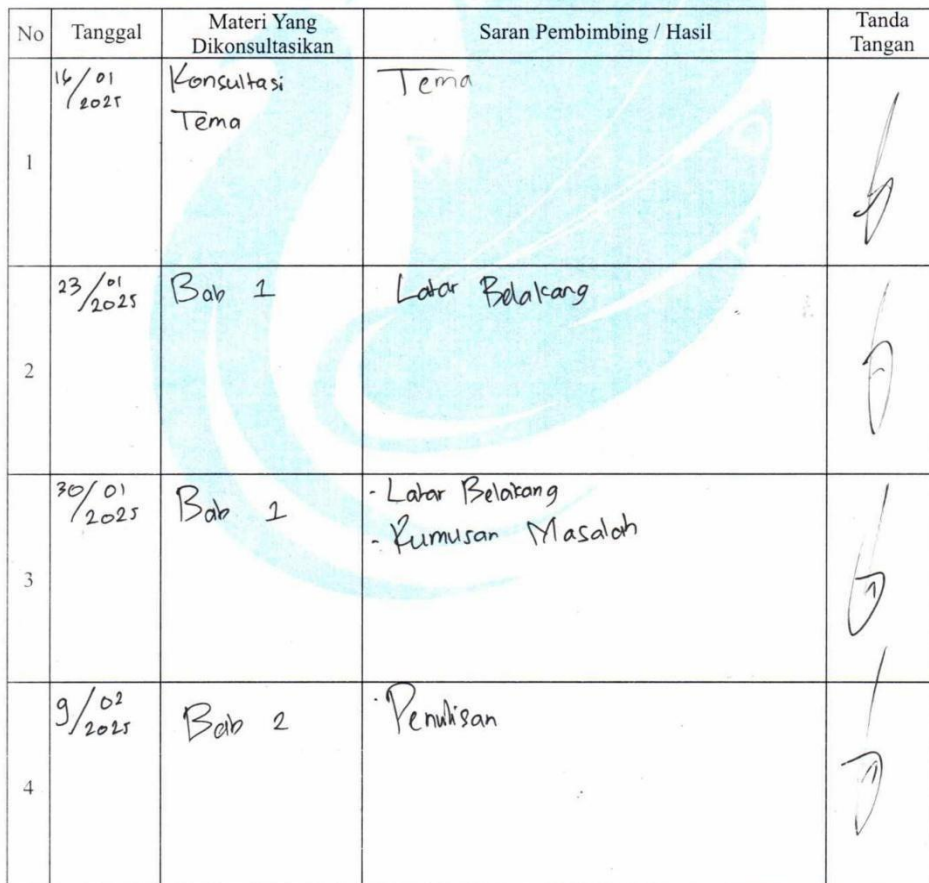 No Tanggal Materi Yang Dikonsultasikan Saran Pembimbing / Hasil Tanda Tangan
1 16/01 2025 Konsultasi Tema Tema
2 23/01 2025 Bab 1 Latar Belakang
3 30/01 2025 Bab 1 - Latar Belakang
- Rumusan Masalah
4 9/02 2025 Bab 2 - Penulisan